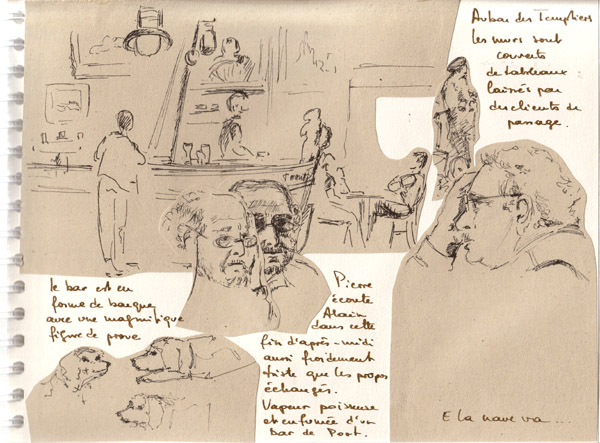 Au bar des Templiers
les murs sont
couverts
de tableaux
laissés par
des clients de
passage.
le bar est en
forme de barque
avec une magnifique
figure de proue
Pierre
écoute
Alain
dans cette
fin d'après-midi
aussi froidement
triste que les propos
échangés.
Vapeur poisseuse
et enfumée d'un
bar de Port.
E la nave va....